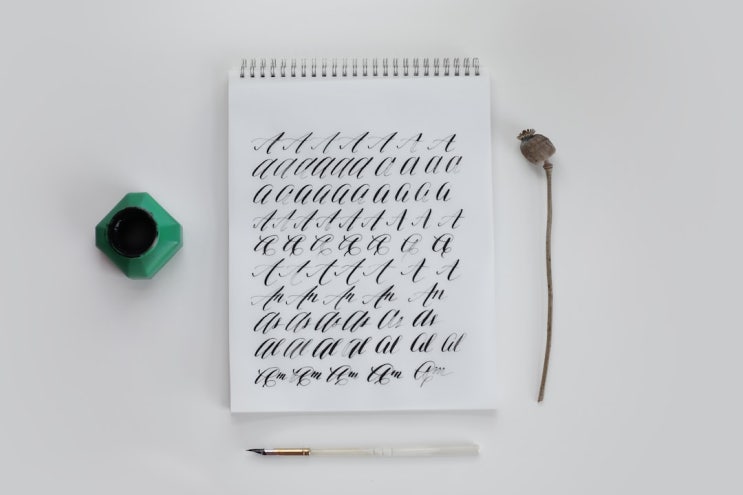 A A A A A A A
a a a a a a a a a a
a a a a a a a a a a
A A A A A A A A A
A A A A A A A
A A A A A A A
An An An An An
As As As As As As
al al al al al al al al
Am Am Am Am Am